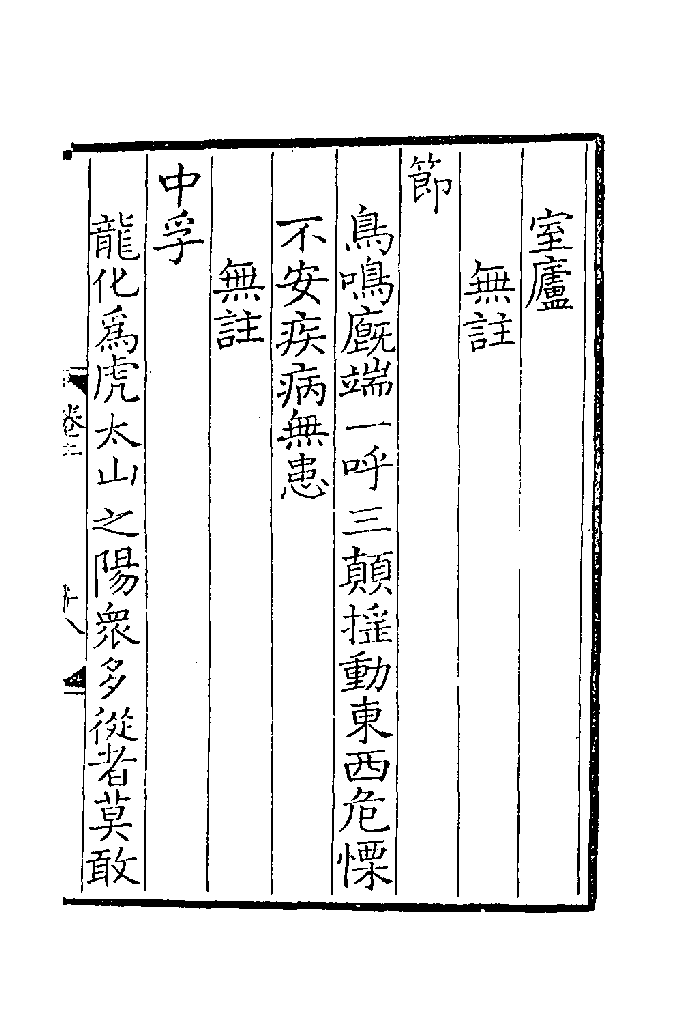 室廬
無註
節
鳥鳴廐端一呼三顛摇動東西危慄
不安疾病無患
無註
中孚
龍化爲虎太山之陽衆多從者莫敢